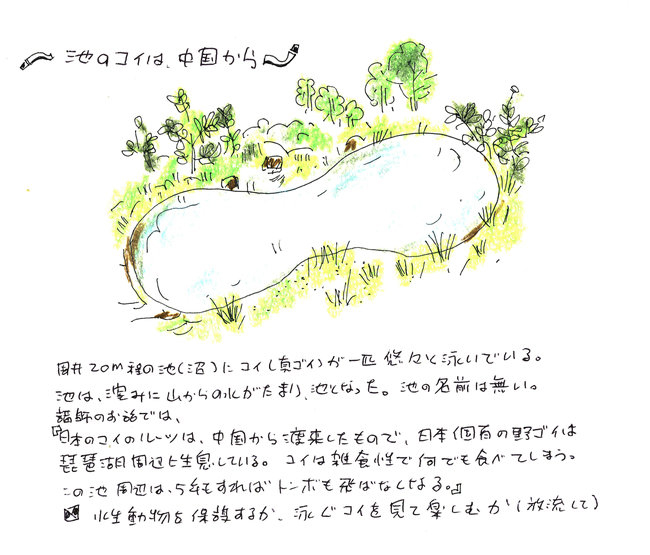 池のコイは、中国から
周井20m程の池(沼)にコイ(真ゴイ)が一匹 悠々と泳いでいる。
池は、窪みに山からの水がたまり、池となった。池の名前は無い。
講師のお話では、
『日本のコイのルーツは、中国から渡来したもので、日本個有の野ゴイは
琵琶湖周辺に生息している。コイは雑食性で何でも食べてしまう。
この池周辺は、5年もすればトンボも飛ばなくなる。』
水生動物を保護するか、泳ぐコイを見て楽しむか(放流して)